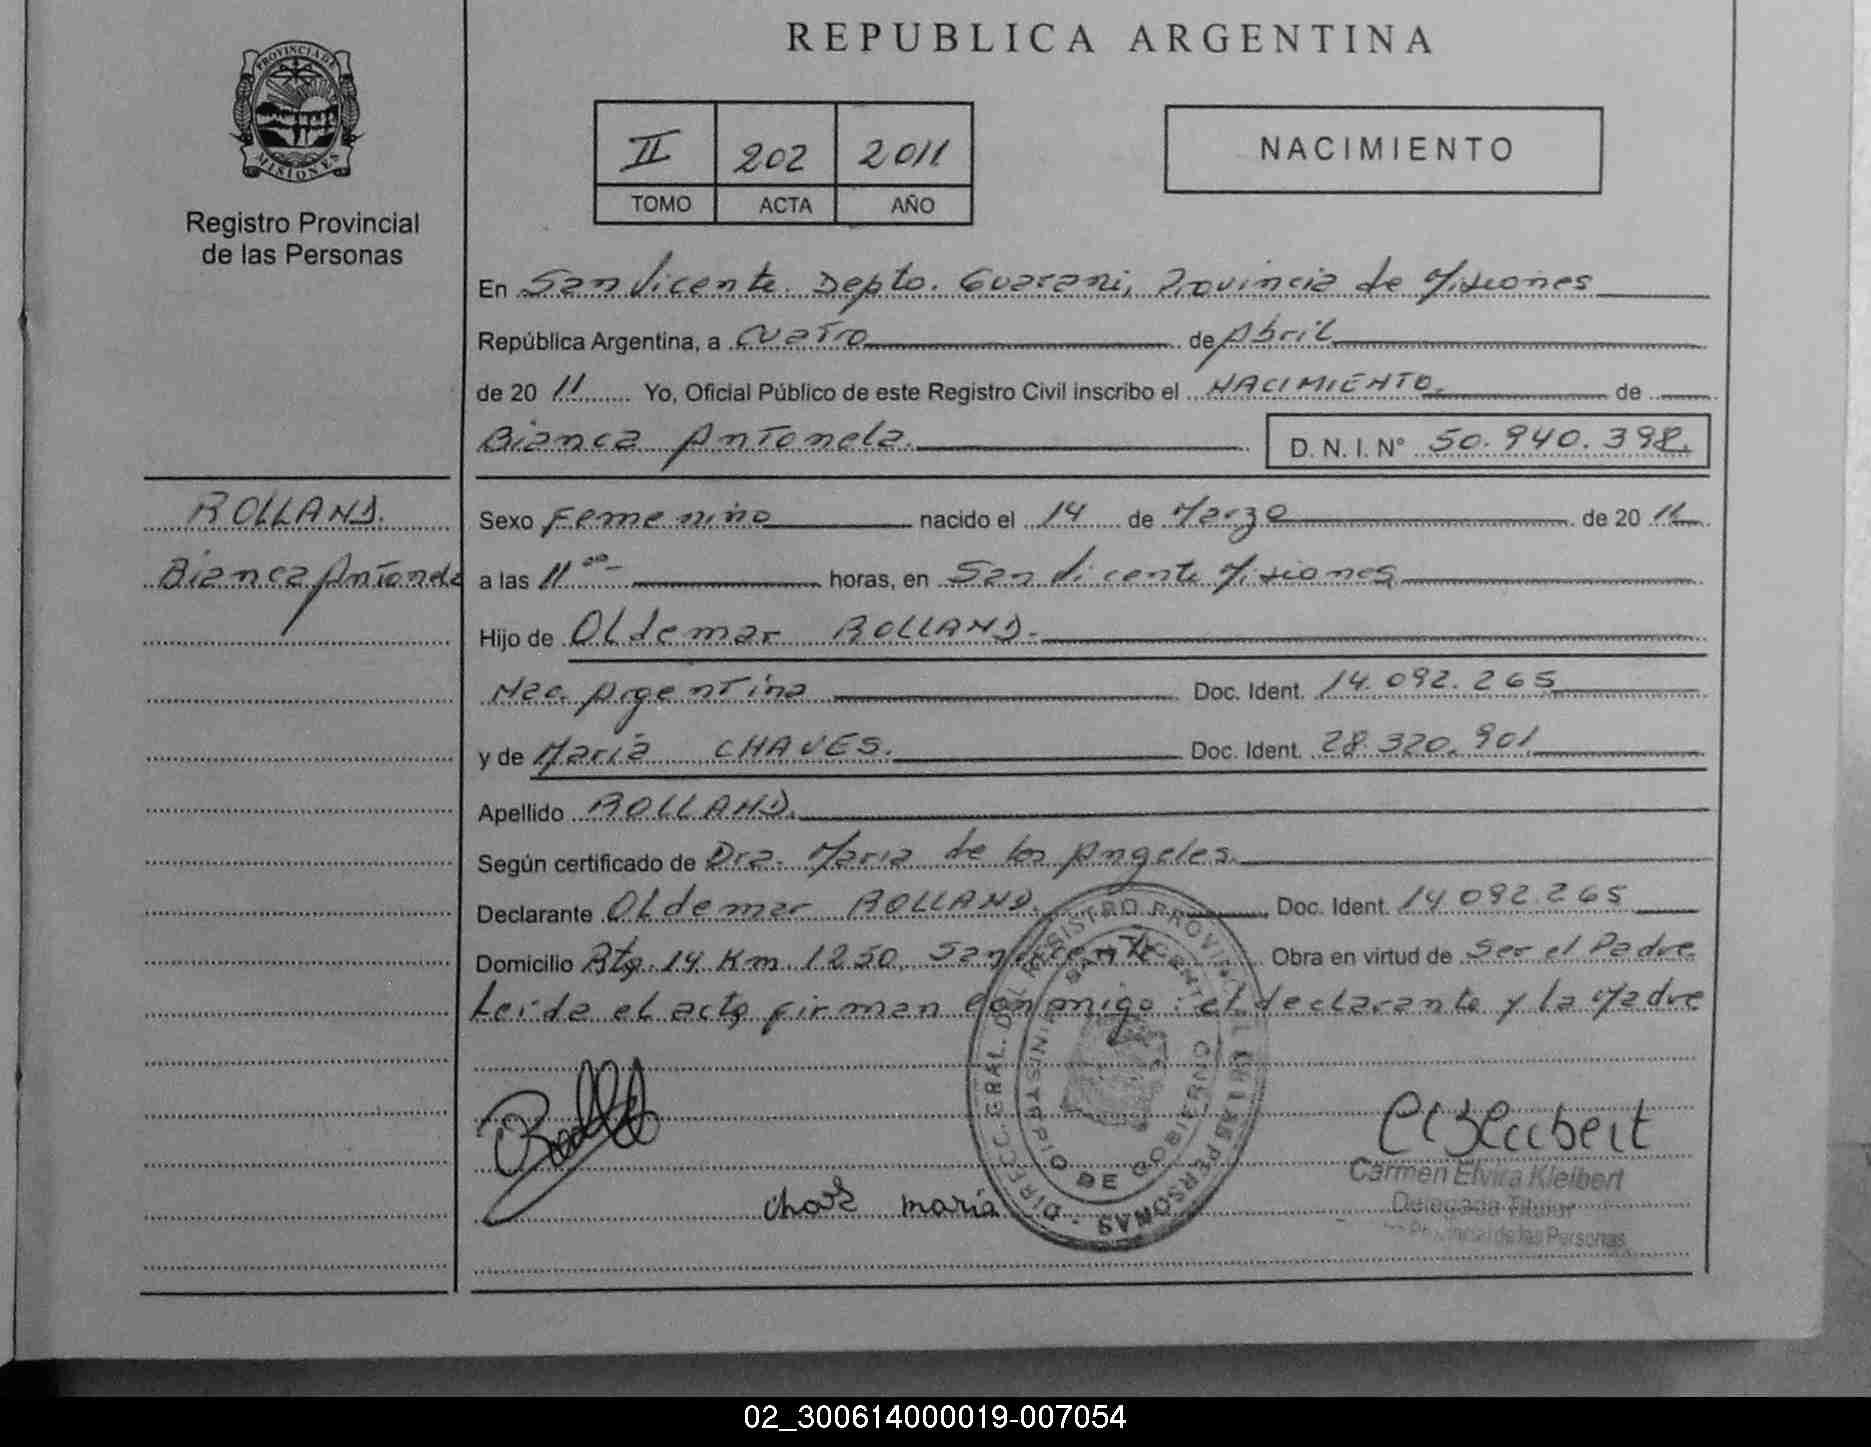 REPUBLICA ARGENTINA
PROVINCIA DE
MISIONES
Registro Provincial
de las Personas
II 202 2011
TOMO ACTA AÑO
NACIMIENTO
En San Vicente. Depto. Guarani, Provincia de Misiones
República Argentina, a cuatro de Abril
de 20 11 Yo, Oficial Público de este Registro Civil inscribo el NACIMIENTO. de
Bianca Antonela. D. N. I. N° 50.940.398.
ROLLAND.
Bianca Antonela
Sexo Femenino nacido el 14 de Marzo de 20 11
a las 11 00- horas, en San Vicente Misiones
Hijo de Oldemar ROLLAND.
Nac. Argentina Doc. Ident. 14.092.265
y de Maria CHAVES. Doc. Ident. 28.320.901
Apellido ROLLAND.
Según certificado de Dra. Maria de los Angeles.
Declarante Oldemar ROLLAND. Doc. Ident. 14.092.265
Domicilio Rta. 14 Km 1250. San Vicente Obra en virtud de Ser el Padre
Leida el acta firman conmigo: el declarante y la Madre
DIRECC. GRAL. DEL REGISTRO PROVINCIAL DE LAS PERSONAS
MINISTERIO DE GOBIERNO
SAN VICENTE
maría
Carmen Elvira Kleibert
Delegada Titular
Provincial de las Personas
02_300614000019-007054